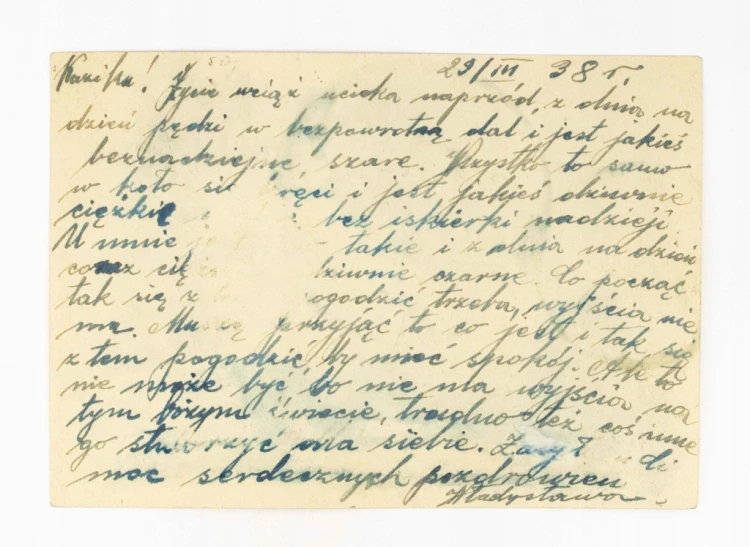 29/III 38 r.
Kaziku! Życie wciąż ucieka naprzód, z dnia na
dzień pędzi w bezpowrotną dal i jest jakieś
beznadziejne szare. Wszystko to samo
w koło się kręci i jest jakieś dziwnie
ciężkie bez iskierki nadzieji
U mnie takie i z dnia na dzień
coraz cięż dziwnie czarne. Co począć
tak się z ogodzić trzeba, wyjścia nie
ma. Muszą przyjąć to co jest i tak się
z tem pogodzić by mieć spokój. A k to
nie może być bo nie ma wyjścia na
tym bożym świecie, trudno też coś inne
go stworzyć dla siebie. Ci
moc serdecznych pozdrowień
Władysława